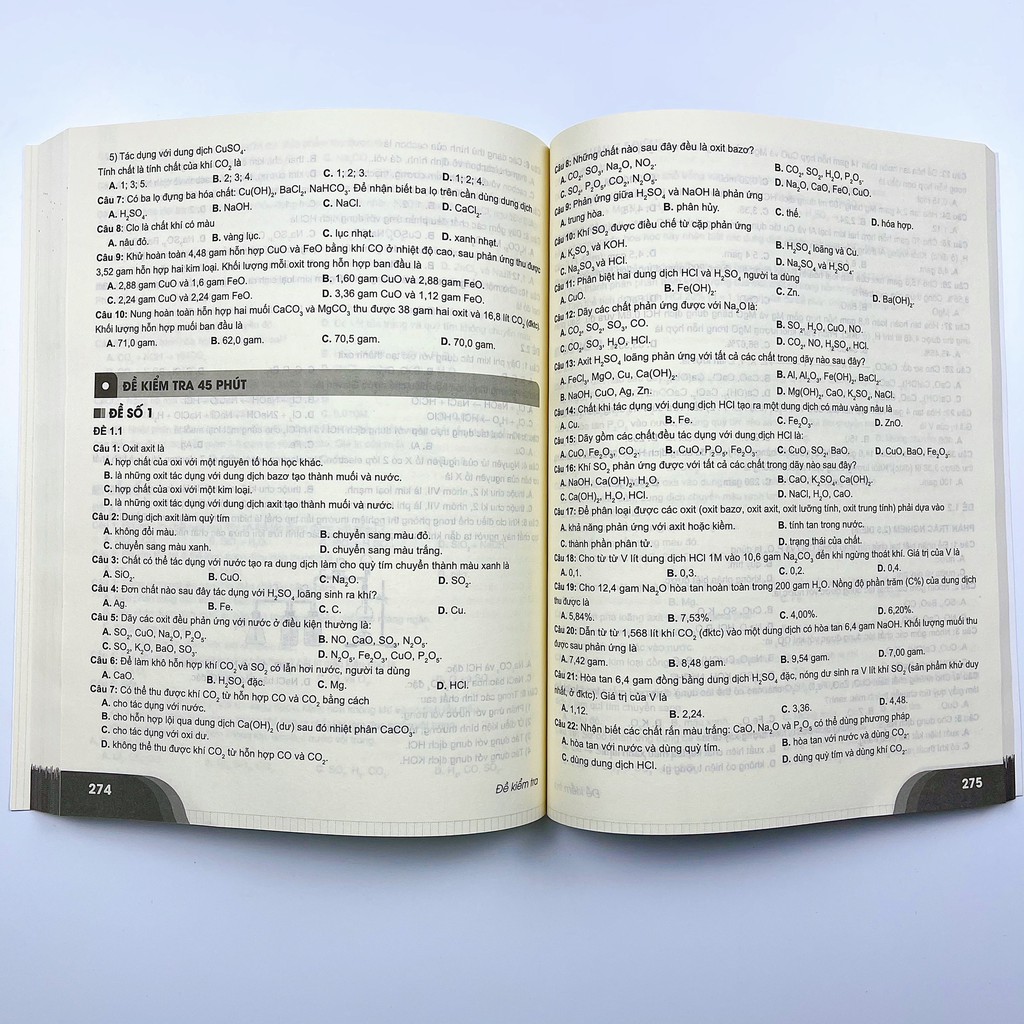 5) Tác dụng với dung dịch CuSO₄.
Tính chất là tính chất của khí CO₂ là
A. 1; 3; 5. B. 2; 3; 4. C. 1; 2; 3. D. 1; 2; 4.
Câu 7: Có ba lọ đựng ba hóa chất: Cu(OH)₂, BaCl₂, NaHCO₃. Để nhận biết ba lọ trên cần dùng dung dịch
A. H₂SO₄. B. NaOH. C. NaCl. D. CaCl₂.
Câu 8: Clo là chất khí có màu
A. nâu đỏ. B. vàng lục. C. lục nhạt. D. xanh nhạt.
Câu 9: Khử hoàn toàn 4,48 gam hỗn hợp CuO và FeO bằng khí CO ở nhiệt độ cao, sau phản ứng thu được
3,52 gam hỗn hợp hai kim loại. Khối lượng mỗi oxit trong hỗn hợp ban đầu là
A. 2,88 gam CuO và 1,6 gam FeO. B. 1,60 gam CuO và 2,88 gam FeO.
C. 2,24 gam CuO và 2,24 gam FeO. D. 3,36 gam CuO và 1,12 gam FeO.
Câu 10: Nung hoàn toàn hỗn hợp hai muối CaCO₃ và MgCO₃ thu được 38 gam hai oxit và 16,8 lít CO₂ (đktc).
Khối lượng hỗn hợp muối ban đầu là
A. 71,0 gam. B. 62,0 gam. C. 70,5 gam. D. 70,0 gam.
ĐỀ KIỂM TRA 45 PHÚT
ĐỀ SỐ 1
ĐỀ 1.1
Câu 1: Oxit axit là
A. hợp chất của oxi với một nguyên tố hóa học khác.
B. là những oxit tác dụng với dung dịch bazơ tạo thành muối và nước.
C. hợp chất của oxi với một kim loại.
D. là những oxit tác dụng với dung dịch axit tạo thành muối và nước.
Câu 2: Dung dịch axit làm quỳ tím
A. không đổi màu. B. chuyển sang màu đỏ.
C. chuyển sang màu xanh. D. chuyển sang màu trắng.
Câu 3: Chất có thể tác dụng với nước tạo ra dung dịch làm cho quỳ tím chuyển thành màu xanh là
A. SiO₂. B. CuO. C. Na₂O. D. SO₂.
Câu 4: Đơn chất nào sau đây tác dụng với H₂SO₄ loãng sinh ra khí?
A. Ag. B. Fe. C. C. D. Cu.
Câu 5: Dãy các oxit đều phản ứng với nước ở điều kiện thường là:
A. SO₂, CuO, Na₂O, P₂O₅. B. NO, CaO, SO₃, N₂O₅.
C. SO₂, K₂O, BaO, SO₃. D. N₂O₅, Fe₂O₃, CuO, P₂O₅.
Câu 6: Để làm khô hỗn hợp khí CO₂ và SO₂ có lẫn hơi nước, người ta dùng
A. CaO. B. H₂SO₄ đặc. C. Mg. D. HCl.
Câu 7: Có thể thu được khí CO₂ từ hỗn hợp CO và CO₂ bằng cách
A. cho tác dụng với nước.
B. cho hỗn hợp lội qua dung dịch Ca(OH)₂ (dư) sau đó nhiệt phân CaCO₃.
C. cho tác dụng với oxi dư.
D. không thể thu được khí CO₂ từ hỗn hợp CO và CO₂.
274
Đề kiểm tra
Câu 8: Những chất nào sau đây đều là oxit bazơ?
A. CO₂, SO₂, Na₂O, NO₂. B. CO₂, SO₂, H₂O, P₂O₅.
C. SO₂, P₂O₅, CO₂, N₂O₅. D. Na₂O, CaO, FeO, CuO.
Câu 9: Phản ứng giữa H₂SO₄ và NaOH là phản ứng
A. trung hòa. B. phân hủy. C. thế. D. hóa hợp.
Câu 10: Khí SO₂ được điều chế từ cặp phản ứng
A. K₂SO₃ và KOH. B. H₂SO₄ loãng và Cu.
C. Na₂SO₃ và HCl. D. Na₂SO₄ và H₂SO₄.
Câu 11: Phân biệt hai dung dịch HCl và H₂SO₄ người ta dùng
A. CuO. B. Fe(OH)₂. C. Zn. D. Ba(OH)₂.
Câu 12: Dãy các chất phản ứng được với Na₂O là:
A. CO₂, SO₂, SO₃, CO. B. SO₂, H₂O, CuO, NO.
C. CO₂, SO₂, H₂O, HCl. D. CO₂, NO, H₂SO₄, HCl.
Câu 13: Axit H₂SO₄ loãng phản ứng với tất cả các chất trong dãy nào sau đây?
A. FeCl₃, MgO, Cu, Ca(OH)₂. B. Al, Al₂O₃, Fe(OH)₂, BaCl₂.
B. NaOH, CuO, Ag, Zn. D. Mg(OH)₂, CaO, K₂SO₄, NaCl.
Câu 14: Chất khi tác dụng với dung dịch HCl tạo ra một dung dịch có màu vàng nâu là
A. Cu. B. Fe. C. Fe₂O₃. D. ZnO.
Câu 15: Dãy gồm các chất đều tác dụng với dung dịch HCl là:
A. CuO, Fe₂O₃, CO₂. B. CuO, P₂O₅, Fe₂O₃. C. CuO, SO₂, BaO. D. CuO, BaO, Fe₂O₃.
Câu 16: Khí SO₂ phản ứng được với tất cả các chất trong dãy nào sau đây?
A. NaOH, Ca(OH)₂, H₂O. B. CaO, K₂SO₄, Ca(OH)₂.
C. Ca(OH)₂, H₂O, HCl. D. NaCl, H₂O, CaO.
Câu 17: Để phân loại được các oxit (oxit bazơ, oxit axit, oxit lưỡng tính, oxit trung tính) phải dựa vào
A. khả năng phản ứng với axit hoặc kiềm. B. tính tan trong nước.
C. thành phần phân tử. D. trạng thái của chất.
Câu 18: Cho từ từ V lít dung dịch HCl 1M vào 10,6 gam Na₂CO₃ đến khi ngừng thoát khí. Giá trị của V là
A. 0,1. B. 0,3. C. 0,2. D. 0,4.
Câu 19: Cho 12,4 gam Na₂O hòa tan hoàn toàn trong 200 gam H₂O. Nồng độ phần trăm (C%) của dung dịch
thu được là
A. 5,84%. B. 7,53%. C. 4,00%. D. 6,20%.
Câu 20: Dẫn từ từ 1,568 lít khí CO₂ (đktc) vào một dung dịch có hòa tan 6,4 gam NaOH. Khối lượng muối thu
được sau phản ứng là
A. 7,42 gam. B. 8,48 gam. B. 9,54 gam. D. 7,00 gam.
Câu 21: Hòa tan 6,4 gam đồng bằng dung dịch H₂SO₄ đặc, nóng dư sinh ra V lít khí SO₂ (sản phẩm khử duy
nhất, ở đktc). Giá trị của V là
A. 1,12. B. 2,24. C. 3,36. D. 4,48.
Câu 22: Nhận biết các chất rắn màu trắng: CaO, Na₂O và P₂O₅ có thể dùng phương pháp
A. hòa tan với nước và dùng quỳ tím. B. hòa tan với nước và dùng CO₂.
C. dùng dung dịch HCl. D. dùng quỳ tím và dùng khí CO₂.
275